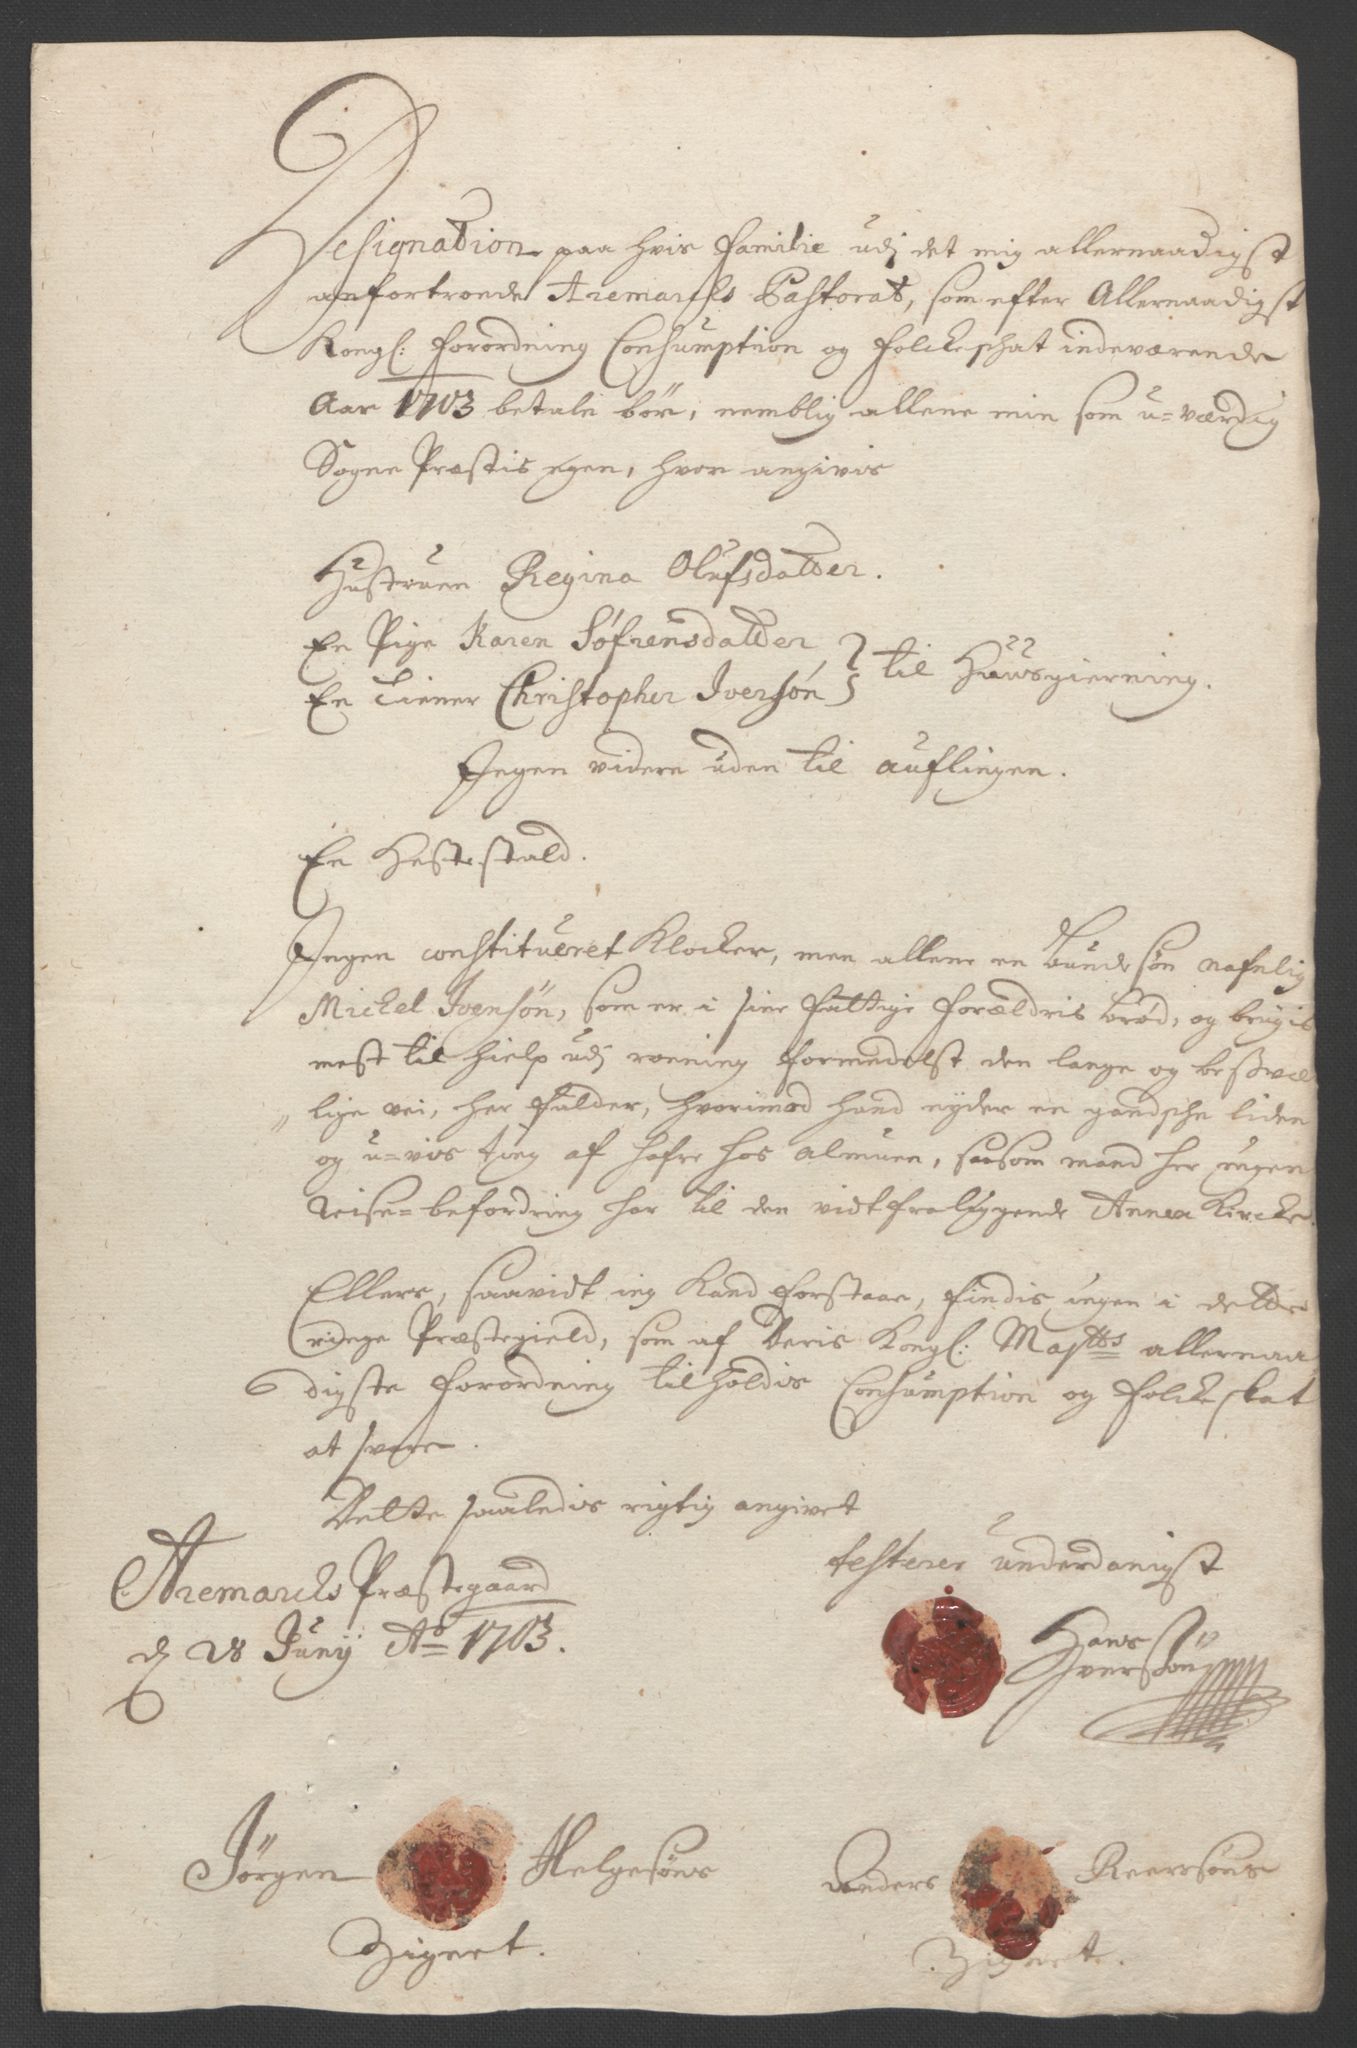 Designation paa hvis Familie udj det mig allernaadigst
anfortroede Aremarchs Pastorat, som efter Allernaadigst
Kongl: Forordning Consumption og Folckeschat indeværende
Aar 1703 betale bör, nemblig allene min som u=værdig
Sogne Præstis egen, hvor angivis
Hustruen Regina Olufsdatter.
En Pige Karen Söfrensdatter
En Tiener Christopher Iversön } til Huusgierning.
Ingen videre uden til auflingen.
En Hestestald.
Ingen constitueret Klocker, men allene en bundesön nafnlig
Michel Ivensön, som er i sine fattige Forældris bröd, og brugis
mest til hielp udj roening formedelst den lange og besvæ
lige vei, her falder, hvorimod hand nyder en gandsche liden
og u=vis ting af hafre hos almuen, saasom mand her ingen
Reise=befordring har til den vidtfraliggende Annex Kircke.
Ellers, saavidt ieg kand forstaar, findis ingen i dette
ringe Præstegield, som af Deris Kongl: Maytts allernaa
digste Forordning tilholdis Consumption og Folckeskat
at svare.
Dette saaledis rigtig angivet
testerer underdanigst
Aremarchs Præstegaard
d 28 Junÿ Ao 1703.
Hans
Iversön
Jörgen Helgesöns
Zignet.
Anders Reersöns
Zignet.